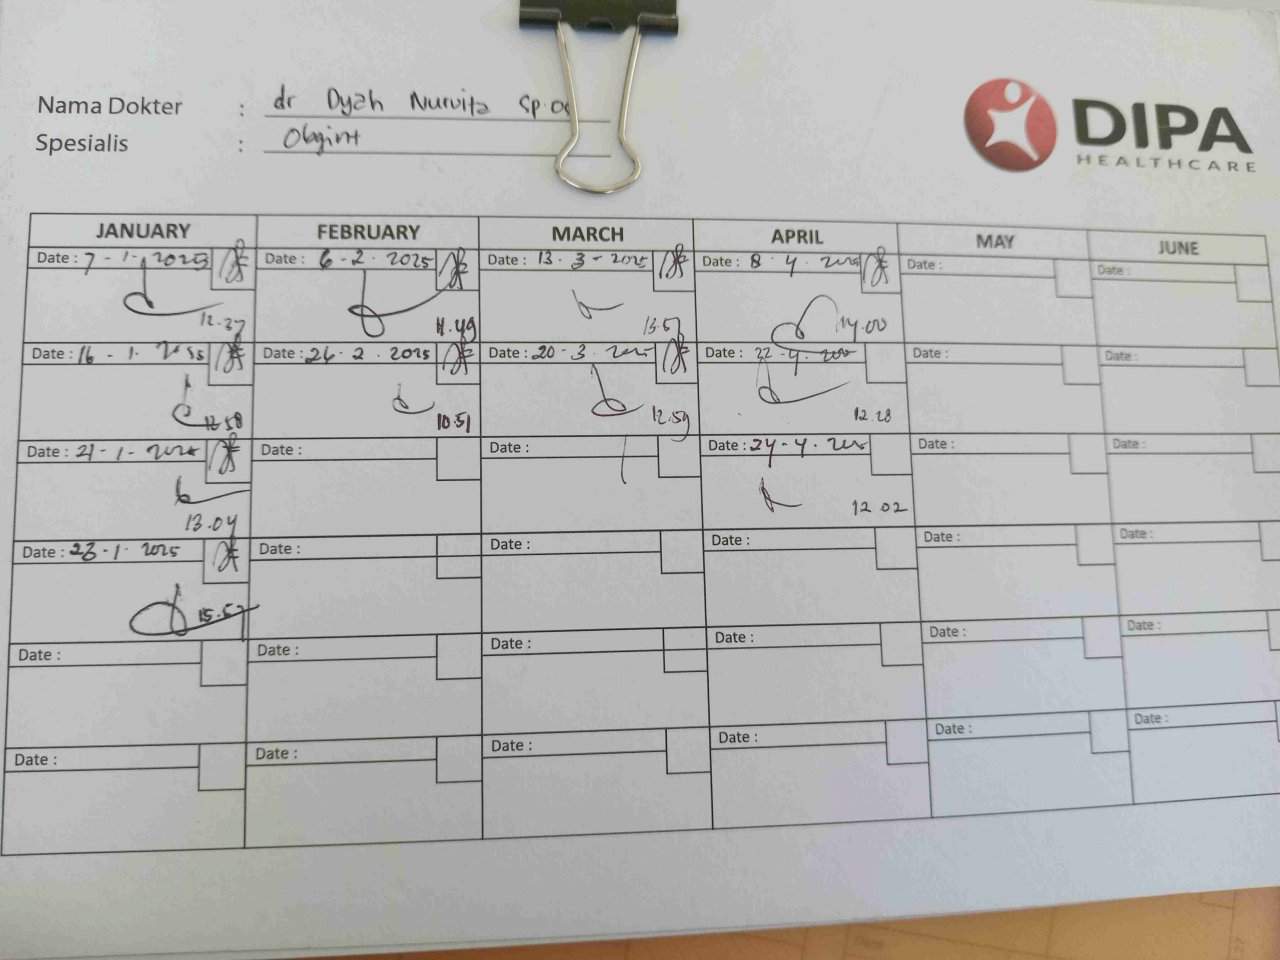 Nama Dokter : dr Dyah Nurvita Sp.OG
Spesialis : Obgint
DIPA
HEALTHCARE
JANUARY FEBRUARY MARCH APRIL MAY JUNE
Date : 7 - 1 - 2025 Date : 6 - 2 . 2025 Date : 13 . 3 - 2025 Date : 8 . 4 . 2025 Date : Date :
12.37 11.49 13.57 14.00
Date : 16 - 1 . 2025 Date : 24 - 2 . 2025 Date : 20 - 3 . 2025 Date : 22 - 4 . 2025 Date : Date :
12.58 10.51 12.59 12.28
Date : 21 - 1 - 2025 Date : Date : Date : 24 - 4 . 2025 Date : Date :
13.04 12.02
Date : 23 - 1 . 2025 Date : Date : Date : Date : Date :
15.57
Date : Date : Date : Date : Date : Date :
Date : Date : Date : Date : Date : Date :